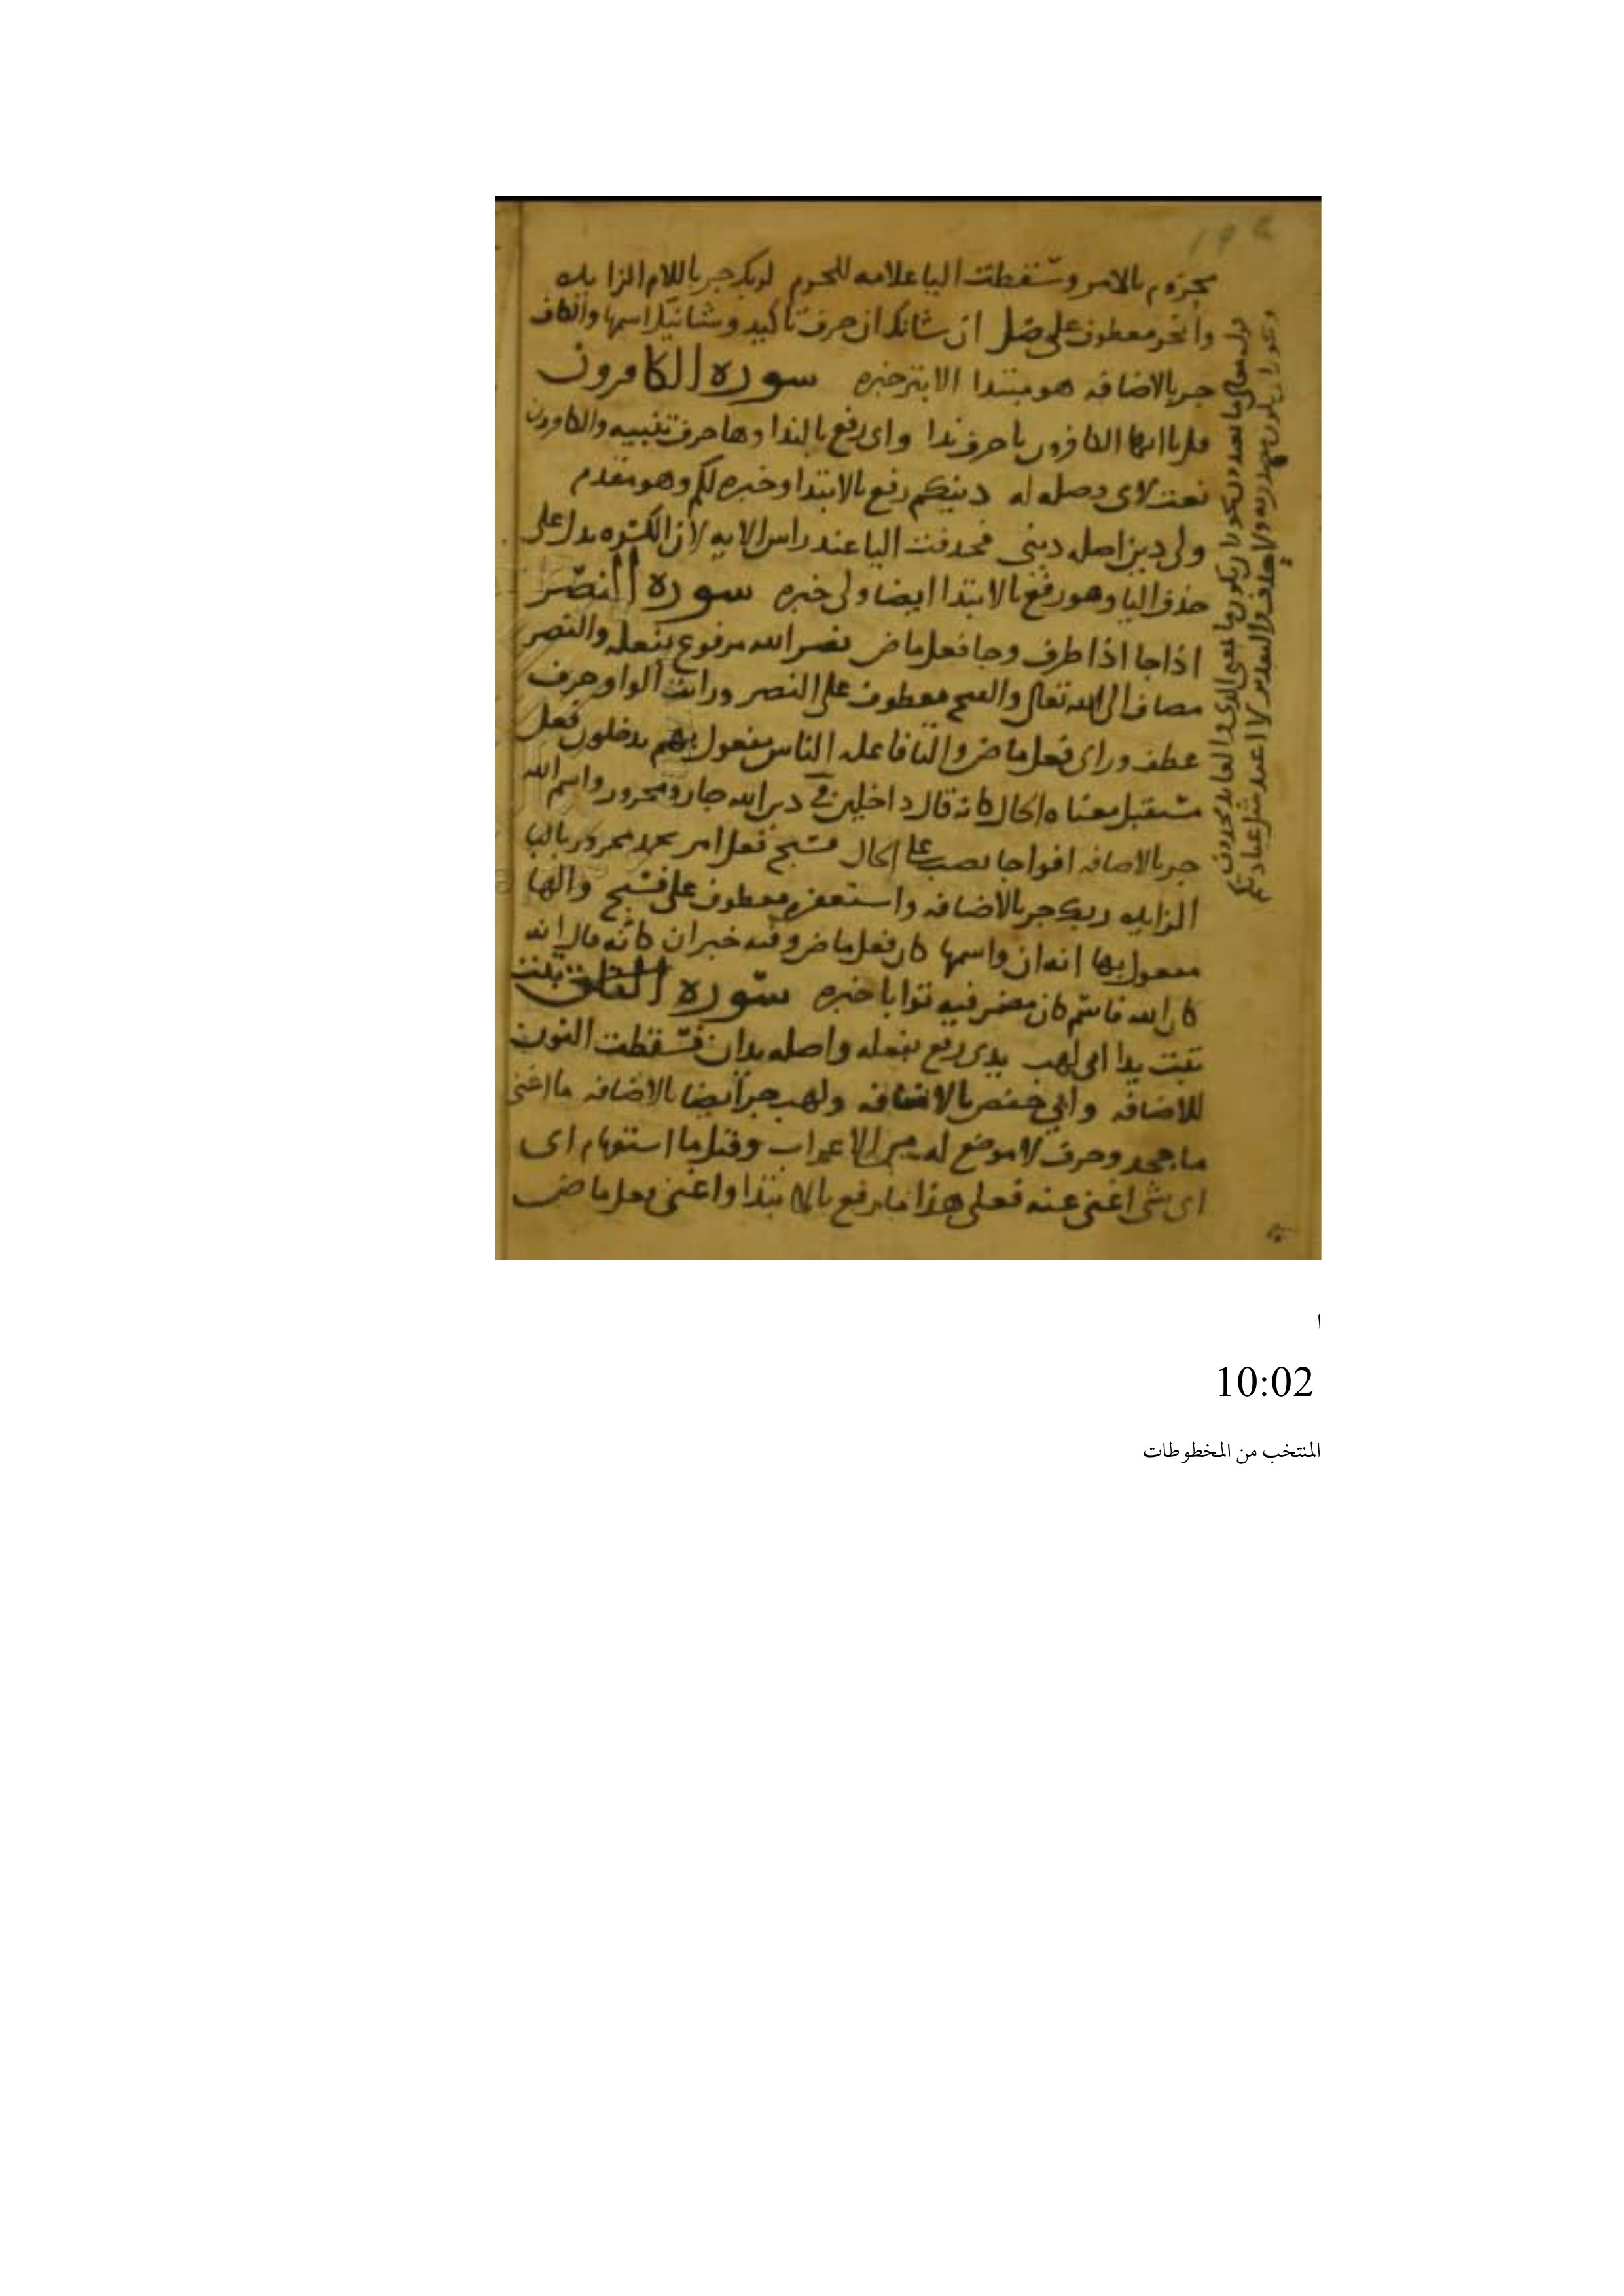 مجزوم بالامر وسقطت اليا علامه للجزم لربك جر باللام الزايده
وانحر معطوف على فصل ان شانك ان حرف تاكيد وشانيك اسمها والكاف
جر بالاضافه هو مبتدا الابتر خبره سوره الكافرون
قل ياايها الكافرون يا حرف ندا واى رفع بالندا وها حرف تنبيه والكافرون
نعت لاى وصله له دينكم رفع بالابتدا وخبره لكم وهو مقدم
ولى دين اصله دينى فحذفت اليا عند راس الايه لان الكسره تدل على
حذف اليا وهو رفع بالابتدا ايضا ولى خبره سوره النصر
اذا جا اذا ظرف وجا فعل ماض نصر الله مرفوع بفعله والنصر
مضاف الى الله تعالى والفتح معطوف على النصر ورايت الواو حرف
عطف وراى فعل ماض والتا فاعله الناس مفعول بهم يدخلون فعل
مستقبل معناه الحال كانه قال داخلين في دين الله جار ومجرور واسم الله
جر بالاضافه افواجا نصب على الحال فسبح فعل امر بحمد مجرور بالبا
الزايده ربك جر بالاضافه واستغفره معطوف على فسبح والها
مفعول بها انه ان واسمها كان فعل ماض وفيه خبر ان كانه قال انه
كان الله فاسم كان مضمر فيه توابا خبره سوره تبت
تبت يدا ابى لهب يدى رفع بفعله واصله يدان فسقطت النون
للاضافه وابي خفض بالاضافه ولهب جر ايضا بالاضافه ما اغنى
ما جحد وحرف لا موضع له من الاعراب وقيل ما استفهام اى
اى شى اغنى عنه فعلى هذا ما رفع بالابتدا واغنى فعل ماض
قوله تعالى ما تعبدون يجوز ان يكون ما بمعنى الذى والعايد محذوف
ويجوز ان يكون مصدريه ولا حذف والتقدير لا اعبد مثل عبادتكم
ا
10:02
المنتخب من المخطوطات